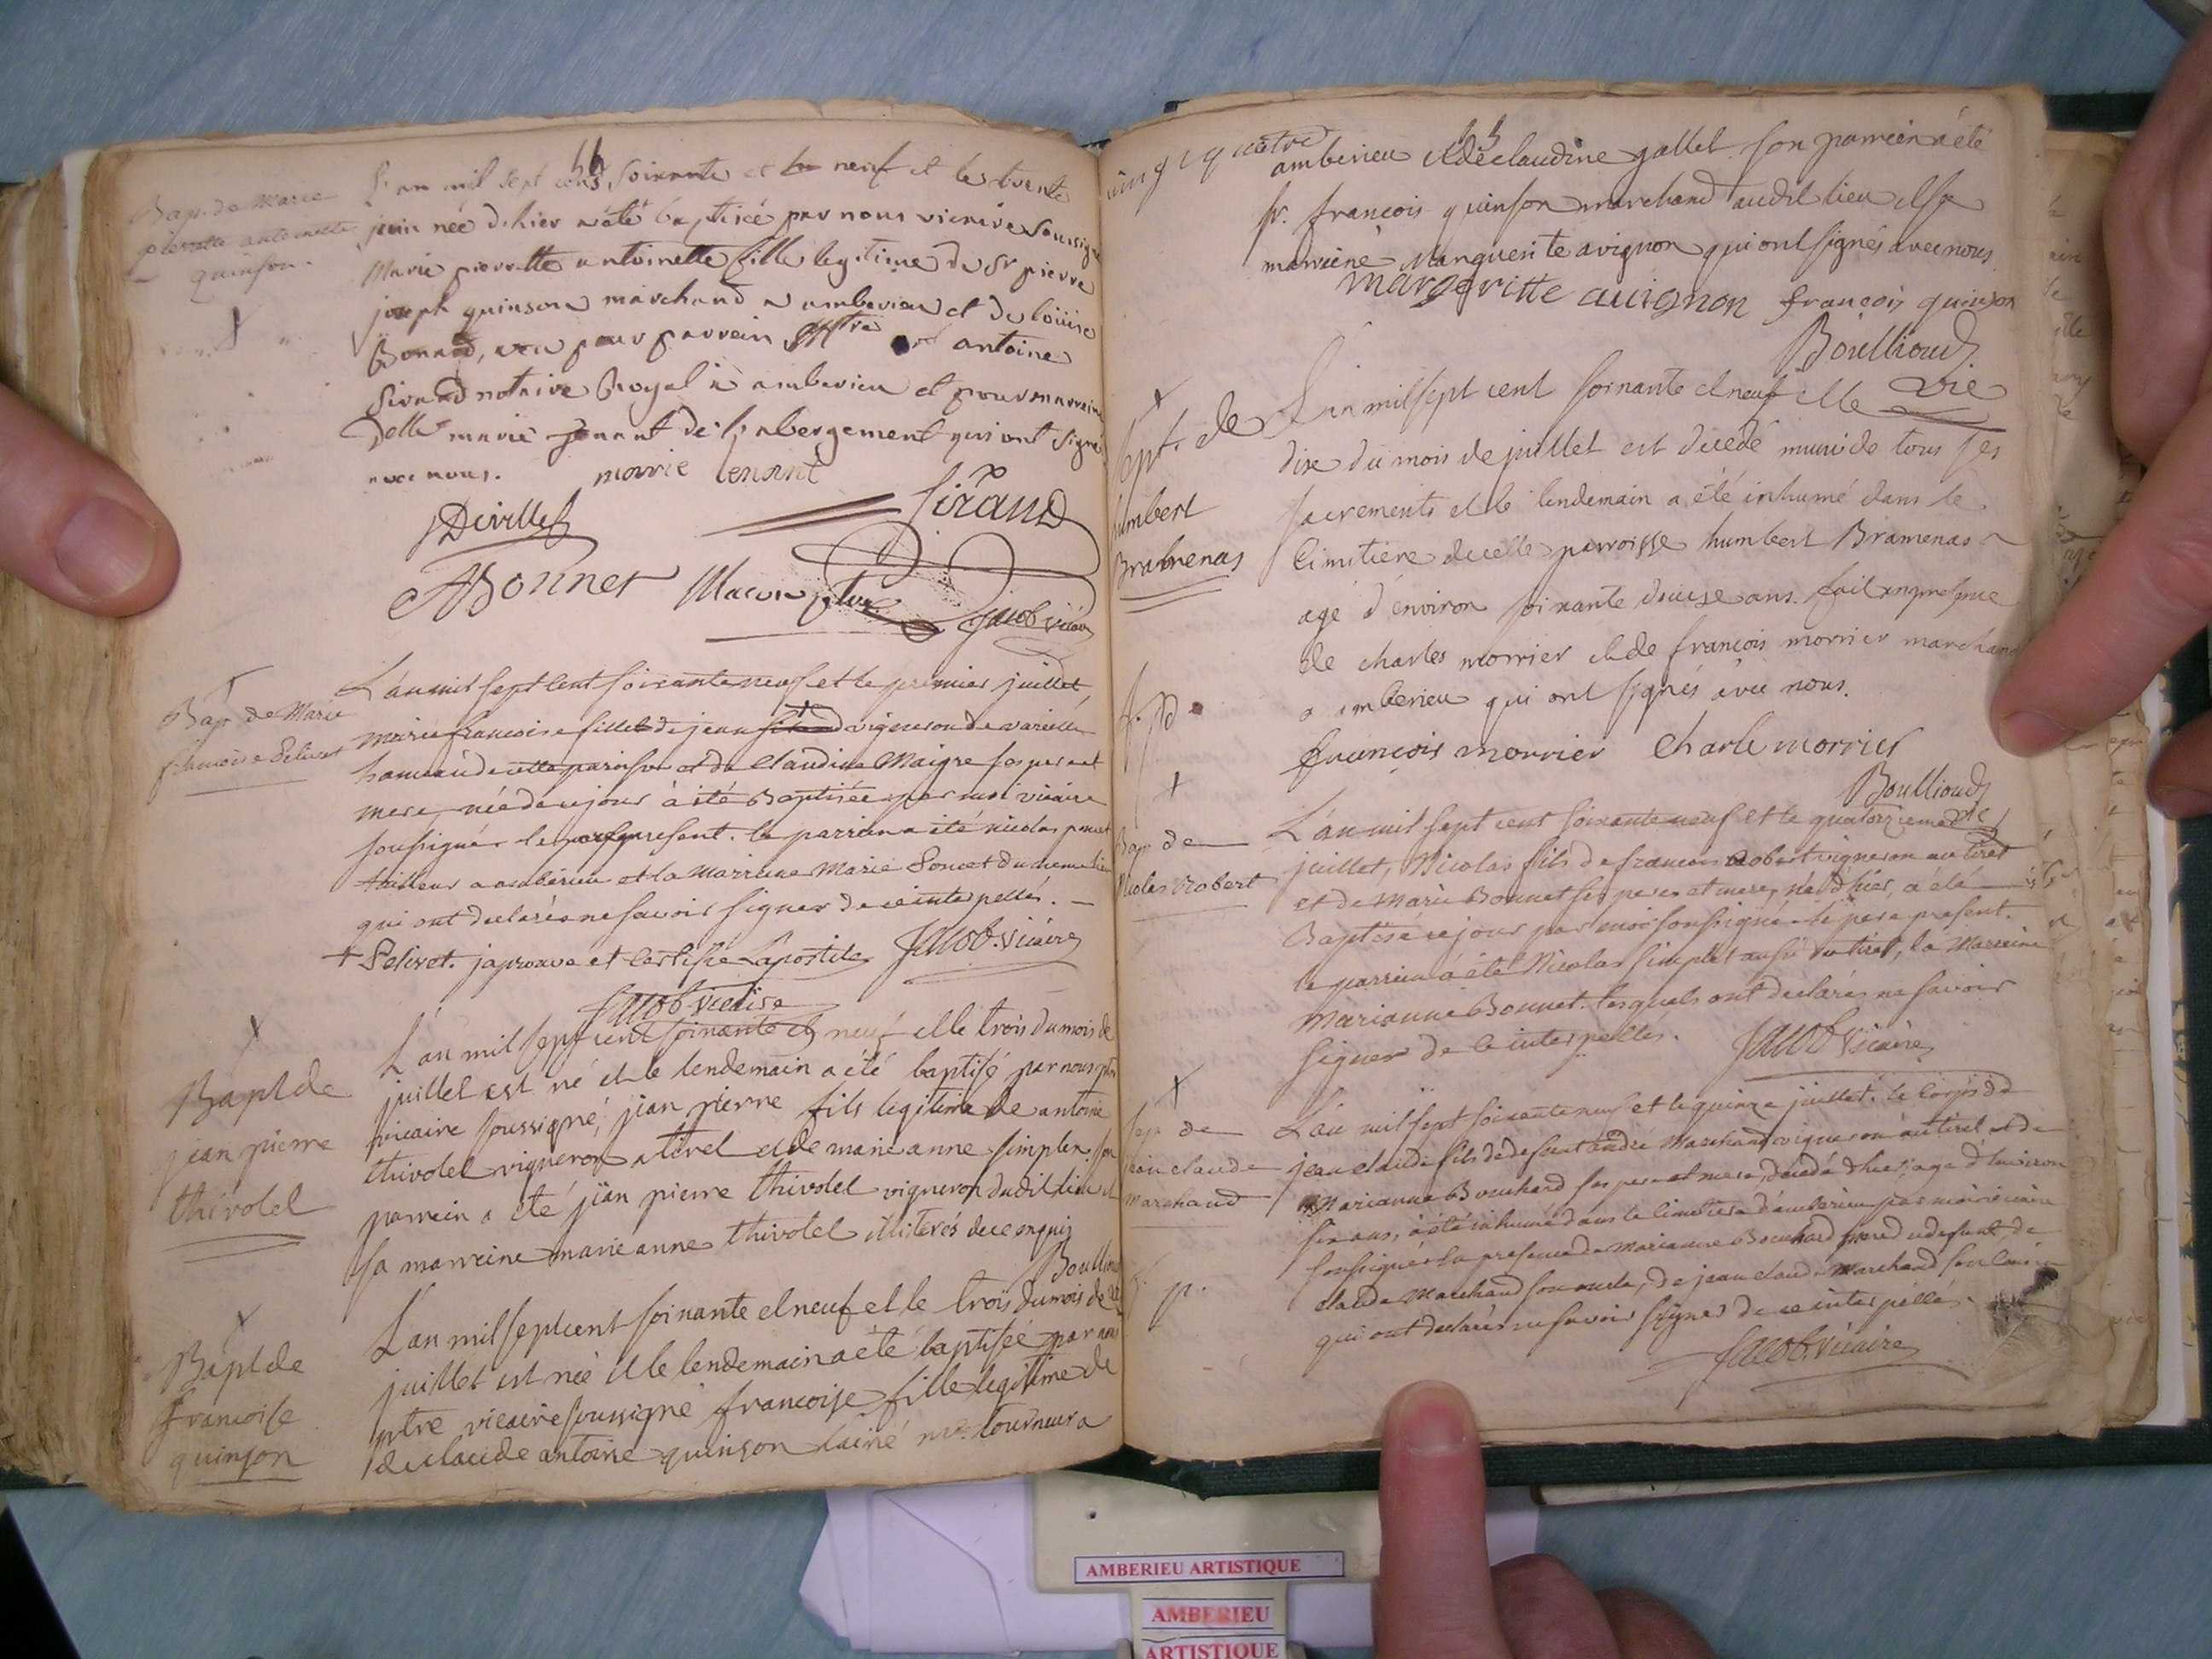 Bap. de Marie
pierrette antoinette
quinson.
L'an mil sept cens soixante et neuf et le trente
juin née d'hier a été baptisée par nous vicaire soussigné
Marie pierrette antoinette fille legitime de Sr pierre
joseph quinson marchand a amberieu et de loüise
Bonard, a eu pour parrein antoine
Sirand notaire Royal à amberieu et pour marreine
Delle marie de l'abergement qui ont signé
avec nous. marie tenant
Deville Sirand
ABonnet Jacob vicaire
Bap. de Marie
francoise Pelivet
L'an mil sept cent soixante neuf et le premier juillet
marie francoise fille de jean + vigneron de vareille
hameau de cette paroisse et de Claudine Maigre ses pere et
mere, née de ce jour à été Baptisée par moi vicaire
soussigné le present. le parrien a été nicolas poncet
tailleur a ambérieu et la Marreine Marie Poncet du meme lieu
qui ont declarés ne savoir signer de ce interpellés.
+ Pelivet. japrouve et certifie L'apostile Jacob. vicaire
Jacob vicaire
Bapt de
jean pierre
thivolet
L'an mil sept cent soixante et neuf et le trois du mois de
juillet est né et le lendemain a été baptisé par nous ptre
vicaire soussigné, jean pierre fils legitime de antoine
thivolet vigneron a tiret et de marieanne simplex. son
parrein a été jean pierre thivolet vigneron dudit lieu et
sa marreine marieanne thivolet illiterés de ce enquis
Boullioud
Bapt de
francoise
quinson
L'an mil sept cent soixante et neuf et le trois du mois de
juillet est née et le lendemain a été baptisée par nous
ptre vicaire soussigné francoise fille legitime de
de claude antoine quinson lainé md. tourneur a
vingt quatre
amberieu et de claudine gallet son parrein a été
sr. françois quinson marchand audit lieu et sa
marreine Marguerite avignon qui ont signés avec nous
margeritte auignon françois quinson
Boullioud
vic
Sept. de
humbert
Bramenas
L'an mil sept cent soixante et neuf et le
dix du mois de juillet est decedé muni de tous ses
sacrements et le lendemain a été inhumé dans le
cimitiere de cette parroisse humbert Bramenas
agé d'environ soixante douze ans. fait en presence
de charles morrier et de françois morrier marchand
a amberieu qui ont signés avec nous.
françois morrier Charle morrier
Boullioud
vic
Bap de
Nicolas Robert
L'an mil sept cent soixante neuf et le quatorzieme
juillet, Nicolas fils de francois Robert vigneron au tiret
et de Marie Bonnet ses peres et meres, né d'hier, a été
Baptisé ce jour par moi soussigné le pere present.
le parrien a été Nicolas simplet aussi du tiret, la Marreine
Marianne Bonnet. lesquels ont declarés ne savoir
signer de ce interpellés. Jacob vicaire
Sep de
jean claude
marchand
L'an mil sept soixante neuf et le quinze juillet. le corps de
jean claude fils de defunt andré Marchand vigneron au tiret et de
Marianne Bouchard ses pere et mere, decedé d'hier, agé d'environ
six ans, a été inhumé dans le cimetiere d'amberieu par moi vicaire
soussigné en presence de Marianne Bouchard mere du defunt de
claude Marchand son oncle, de jean claude Marchand son cousin
qui ont declarés ne savoir signer de ce interpellés.
Jacob. vicaire
AMBERIEU ARTISTIQUE
AMBERIEU
ARTISTIQUE